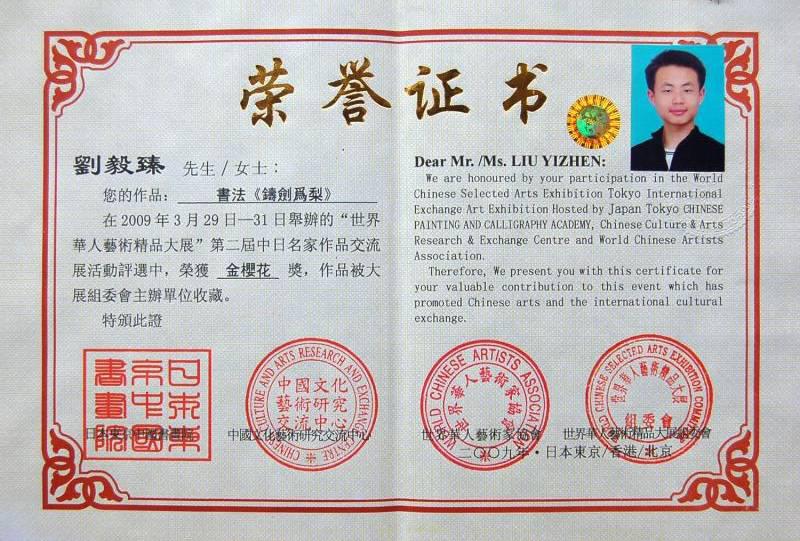 荣誉证书
劉毅臻 先生/女士:
您的作品: 書法《鑄劍爲犁》
在2009年3月29日—31日舉辦的“世界
華人藝術精品大展”第二屆中日名家作品交流
展活動評選中,榮獲 金櫻花 獎,作品被大
展組委會主辦單位收藏。
特頒此證
Dear Mr. /Ms. LIU YIZHEN:
We are honoured by your participation in the World
Chinese Selected Arts Exhibition Tokyo International
Exchange Art Exhibition Hosted by Japan Tokyo CHINESE
PAINTING AND CALLIGRAPHY ACADEMY, Chinese Culture & Arts
Research & Exchange Centre and World Chinese Artists
Association.
Therefore, We present you with this certificate for
your valuable contribution to this event which has
promoted Chinese arts and the international cultural
exchange.
日本東
京中國
書畫院
CHINESE CULTURE AND ARTS RESEARCH AND EXCHANGE CENTRE
中國文化
藝術研究
交流中心
WORLD CHINESE ARTISTS ASSOCIATION
世界華人藝術家協會
WORLD CHINESE SELECTED ARTS EXHIBITION COMMITTEE
世界華人藝術精品大展
組委會
日本東京中國書畫院
中國文化藝術研究交流中心
世界華人藝術家協會
世界華人藝術精品大展組委會
二〇〇九年·日本東京/香港/北京